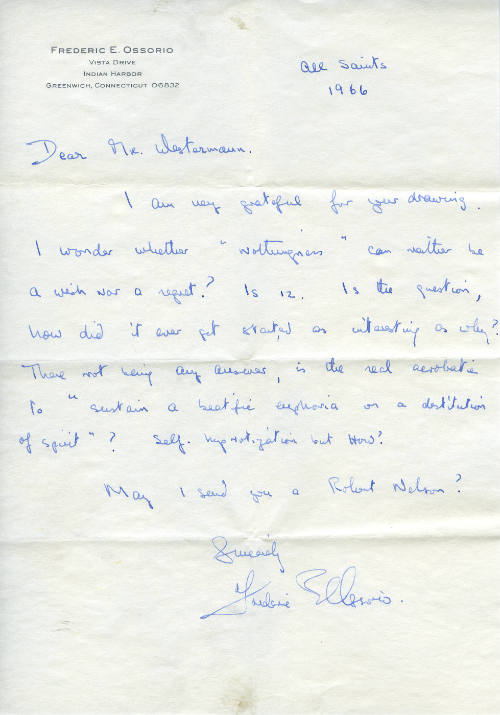 FREDERIC E. OSSORIO
VISTA DRIVE
INDIAN HARBOR
GREENWICH, CONNECTICUT 06832
All Saints
1966
Dear Mr. Westermann.
I am very grateful for your drawing.
I wonder whether "nothingness" can neither be
a wish nor a regret? Is iz. Is the question,
how did it ever get started as interesting as why?
There not being any answer, is the real acrobatic
to "sustain a beatific euphoria on a destitution
of spirit"? Self-hypnotization but How?
May I send you a Robert Nelson?
Sincerely
Frederic E Ossorio.